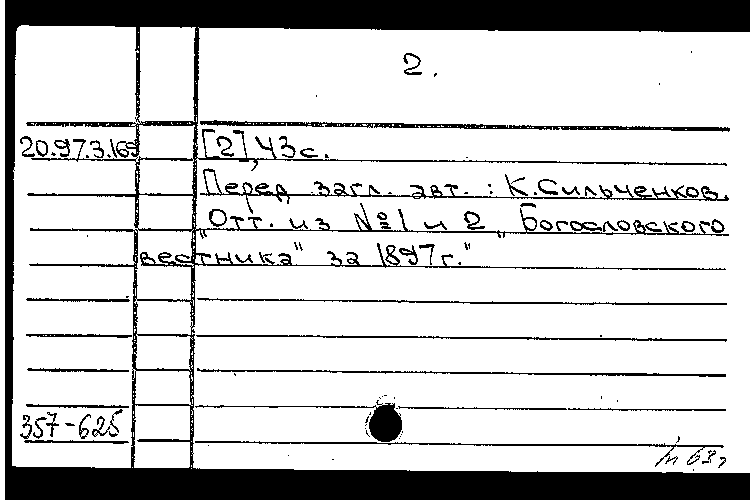 2.
20.97.3.169 [2], 43 с.
Перед загл. авт. : К. Сильченков.
„Отт. из №1 и 2 „Богословского
вестника" за 1897 г."
357-625